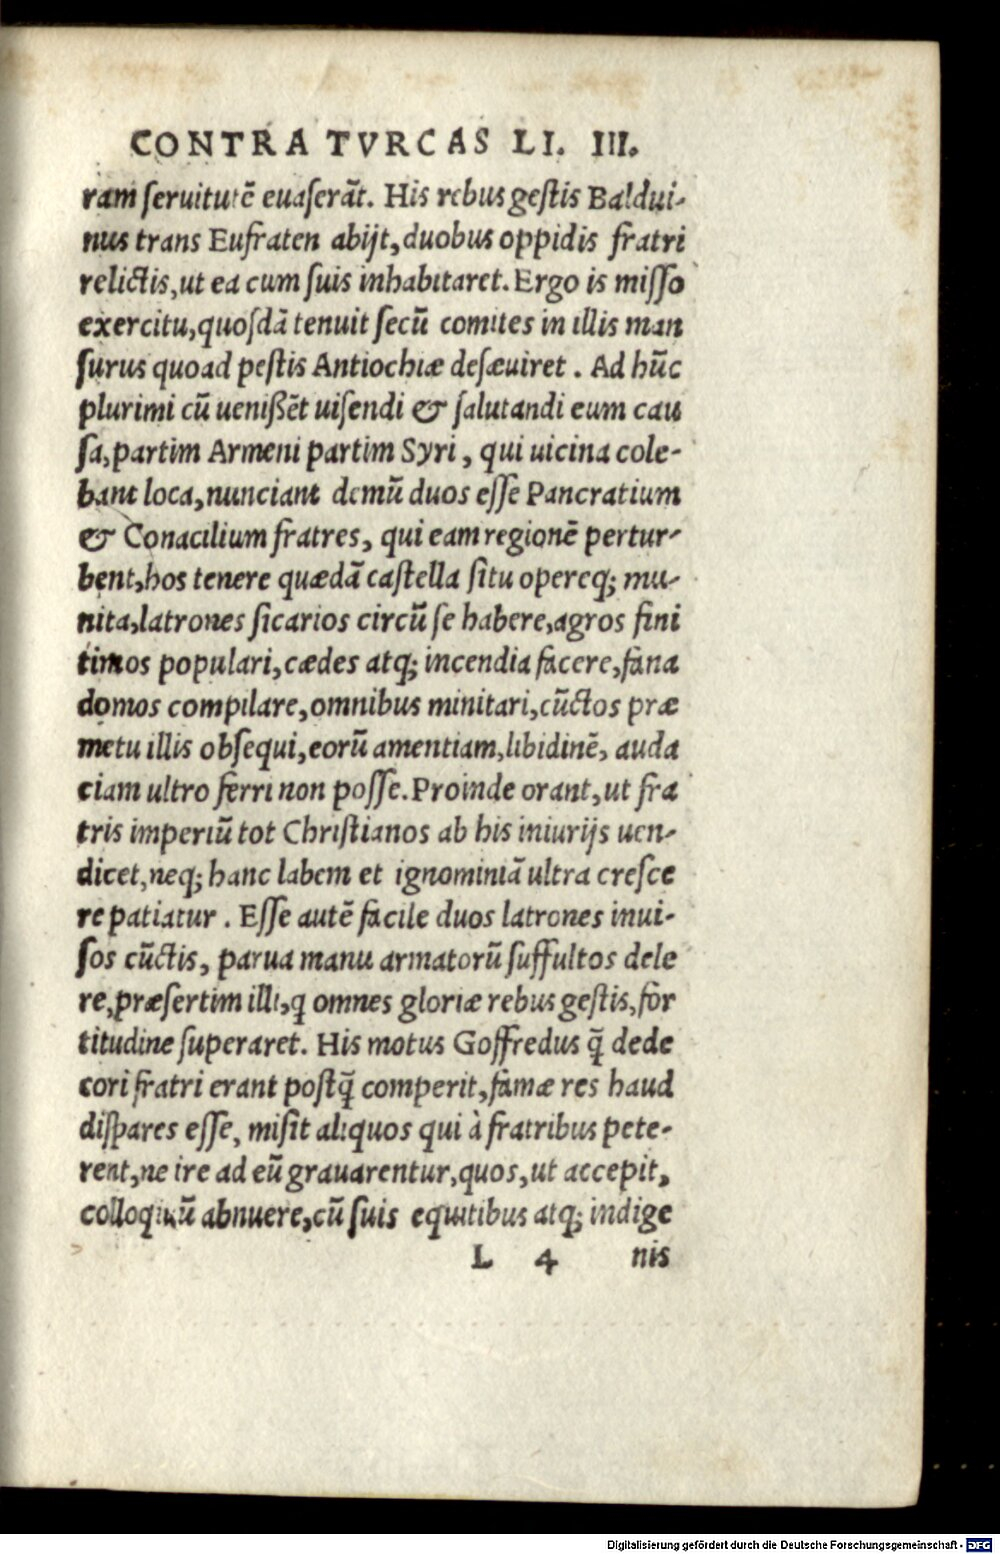 CONTRA TVRCAS LI. III.
ram ſeruitutē euaſerāt. His rebus geſtis Baldui-
nus trans Eufraten abijt, duobus oppidis fratri
relictis, ut ea cum ſuis inhabitaret. Ergo is miſſo
exercitu, quoſdā tenuit ſecū comites in illis man
ſurus quoad peſtis Antiochiæ deſæuiret. Ad hūc
plurimi cū ueniſſēt uiſendi & ſalutandi eum cau
ſa, partim Armeni partim Syri, qui uicina cole-
bant loca, nunciant demū duos eſſe Pancratium
& Conacilium fratres, qui eam regionē pertur-
bent, hos tenere quædā caſtella ſitu opereq; mu-
nita, latrones ſicarios circū ſe habere, agros fini
timos populari, cædes atq; incendia facere, fana
domos compilare, omnibus minitari, cūctos præ
metu illis obſequi, eorū amentiam, libidinē, auda
ciam ultro ferri non poſſe. Proinde orant, ut fra
tris imperiū tot Chriſtianos ab his iniurijs uen-
dicet, neq; hanc labem et ignominiā ultra creſce
re patiatur. Eſſe autē facile duos latrones inui-
ſos cūctis, parua manu armatorū ſuffultos dele
re, præſertim illi, q omnes gloriæ rebus geſtis, for
titudine ſuperaret. His motus Goffredus q̄ dede
cori fratri erant poſtq̄ comperit, famæ res haud
diſpares eſſe, miſit aliquos qui à fratribus pete-
rent, ne ire ad eū grauarentur, quos, ut accepit,
colloquiū abnuere, cū ſuis equitibus atq; indige
L 4 nis
Digitalisierung gefördert durch die Deutsche Forschungsgemeinschaft - DFG